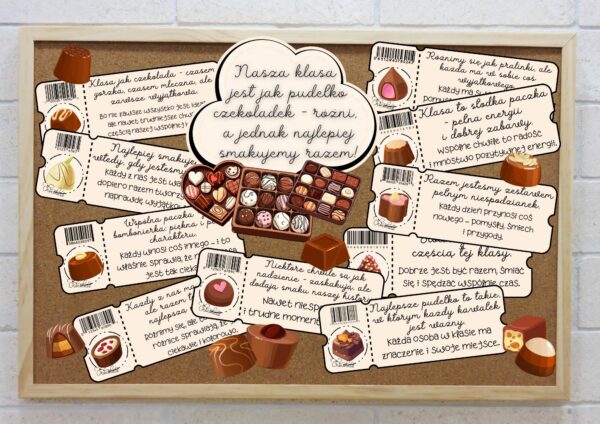 Nasza klasa
jest jak pudełko
czekoladek - różni,
a jednak najlepiej
smakujemy razem!
Klasa jak czekolada - czasem
gorzka, czasem mleczna, ale
zawsze wyjątkowa.
Bo nie zawsze wszystko jest
ale nawet trudniejsze
częścią naszej wspólnej
Najlepiej smakuj
wtedy, gdy jesteśmy
Każdy z nas jest
dopiero razem tworzy
naprawdę
Wspólna paczka
bombonierka: piękna i
charakteru.
Każdy wnosi coś innego - i to
właśnie sprawia, że
jest tak
Każdy z nas
ale razem
najlepsza
różnice sprawiają, ż
ciekawie i kolorowo.
Niektóre chwile są jak
nadzienie - zaskakują, ale
dodają smaku naszej histor
Nawet niesp
i trudne momen
Różnimy się jak pralinki, ale
każda ma w sobie coś
wyjątkowego.
Każdy ma
pomysł
Klasa to słodka paczka
- pełna energii
i dobrej zabawy
Wspólne chwile to radość
i mnóstwo pozytywnej energii.
Razem jesteśmy zestawem
pełnym niespodzianek.
Każdy dzień przynosi coś
nowego - pomysły, śmiech
i przygody.
częścią tej klasy.
Dobrze jest być razem, śmiać
się i spędzać wspólnie czas.
Najlepsze pudełko to takie,
w którym każdy kawałek
jest ważny.
Każda osoba w klasie ma
znaczenie i swoje miejsce.